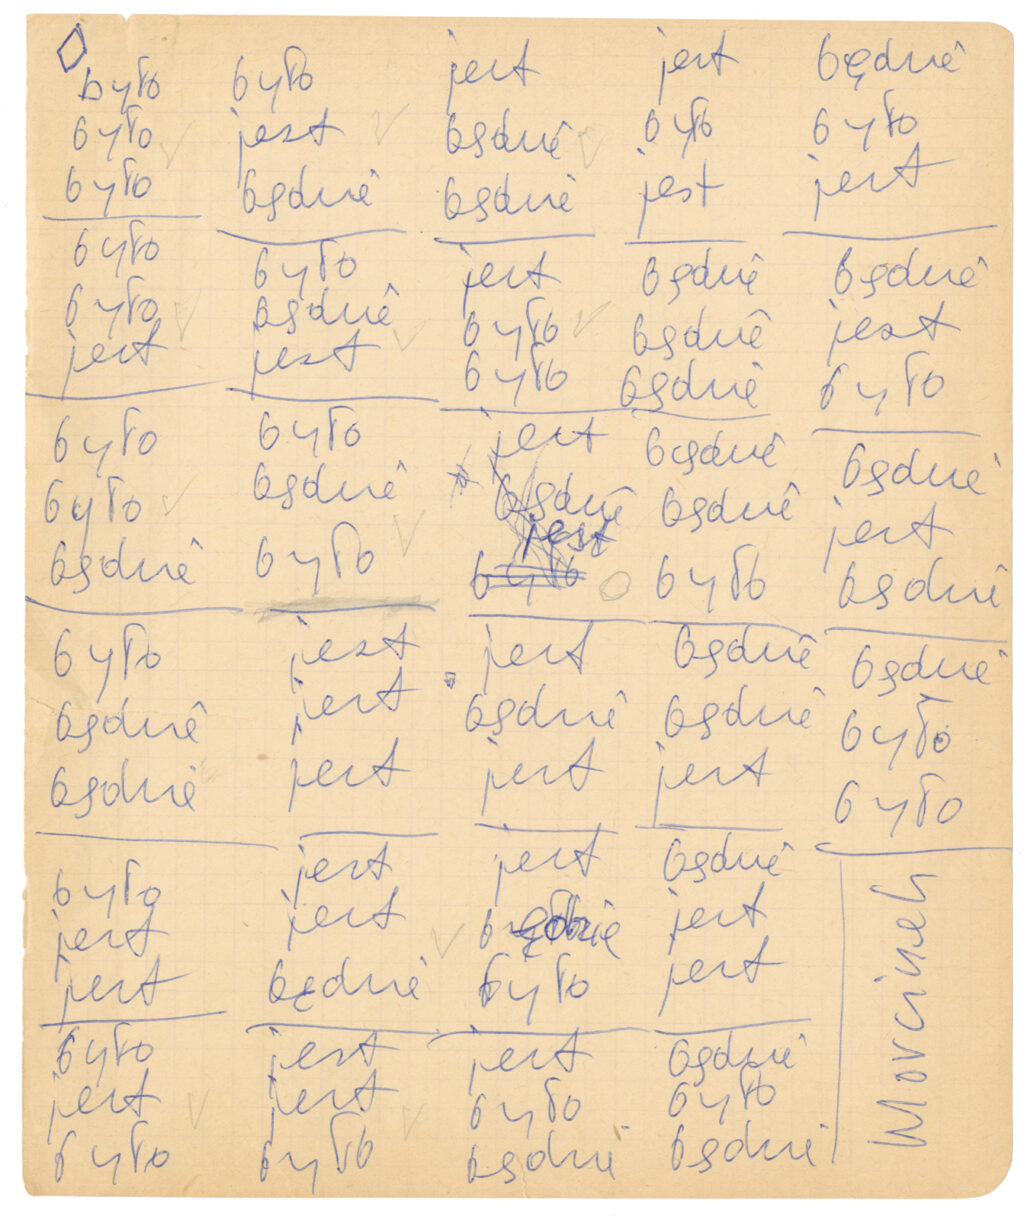 było
było
było
było
było
jest
było
było
będzie
było
będzie
będzie
było
jest
jest
było
jest
było
było
jest
będzie
było
będzie
jest
było
będzie
było
jest
jest
jest
jest
jest
będzie
jest
jest
było
jest
będzie
będzie
jest
było
było
jest
będzie
jest
było
jest
będzie
jest
jest
było
jest
było
będzie
jest
było
jest
będzie
będzie
będzie
będzie
będzie
było
będzie
będzie
jest
będzie
jest
jest
będzie
było
będzie
będzie
było
jest
będzie
jest
było
będzie
jest
będzie
będzie
było
było
Morcinek